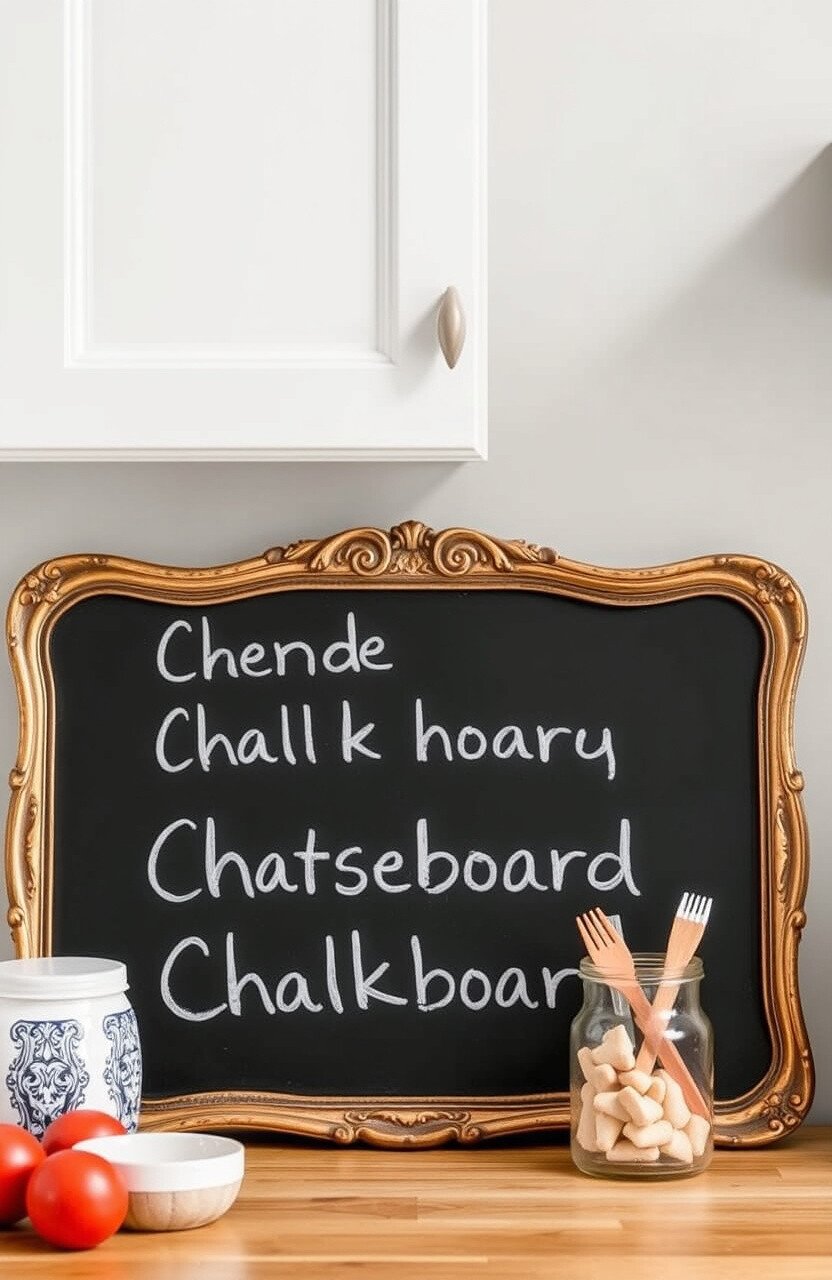 Chende
Challk hoary
Chatseboard
Chalkboar